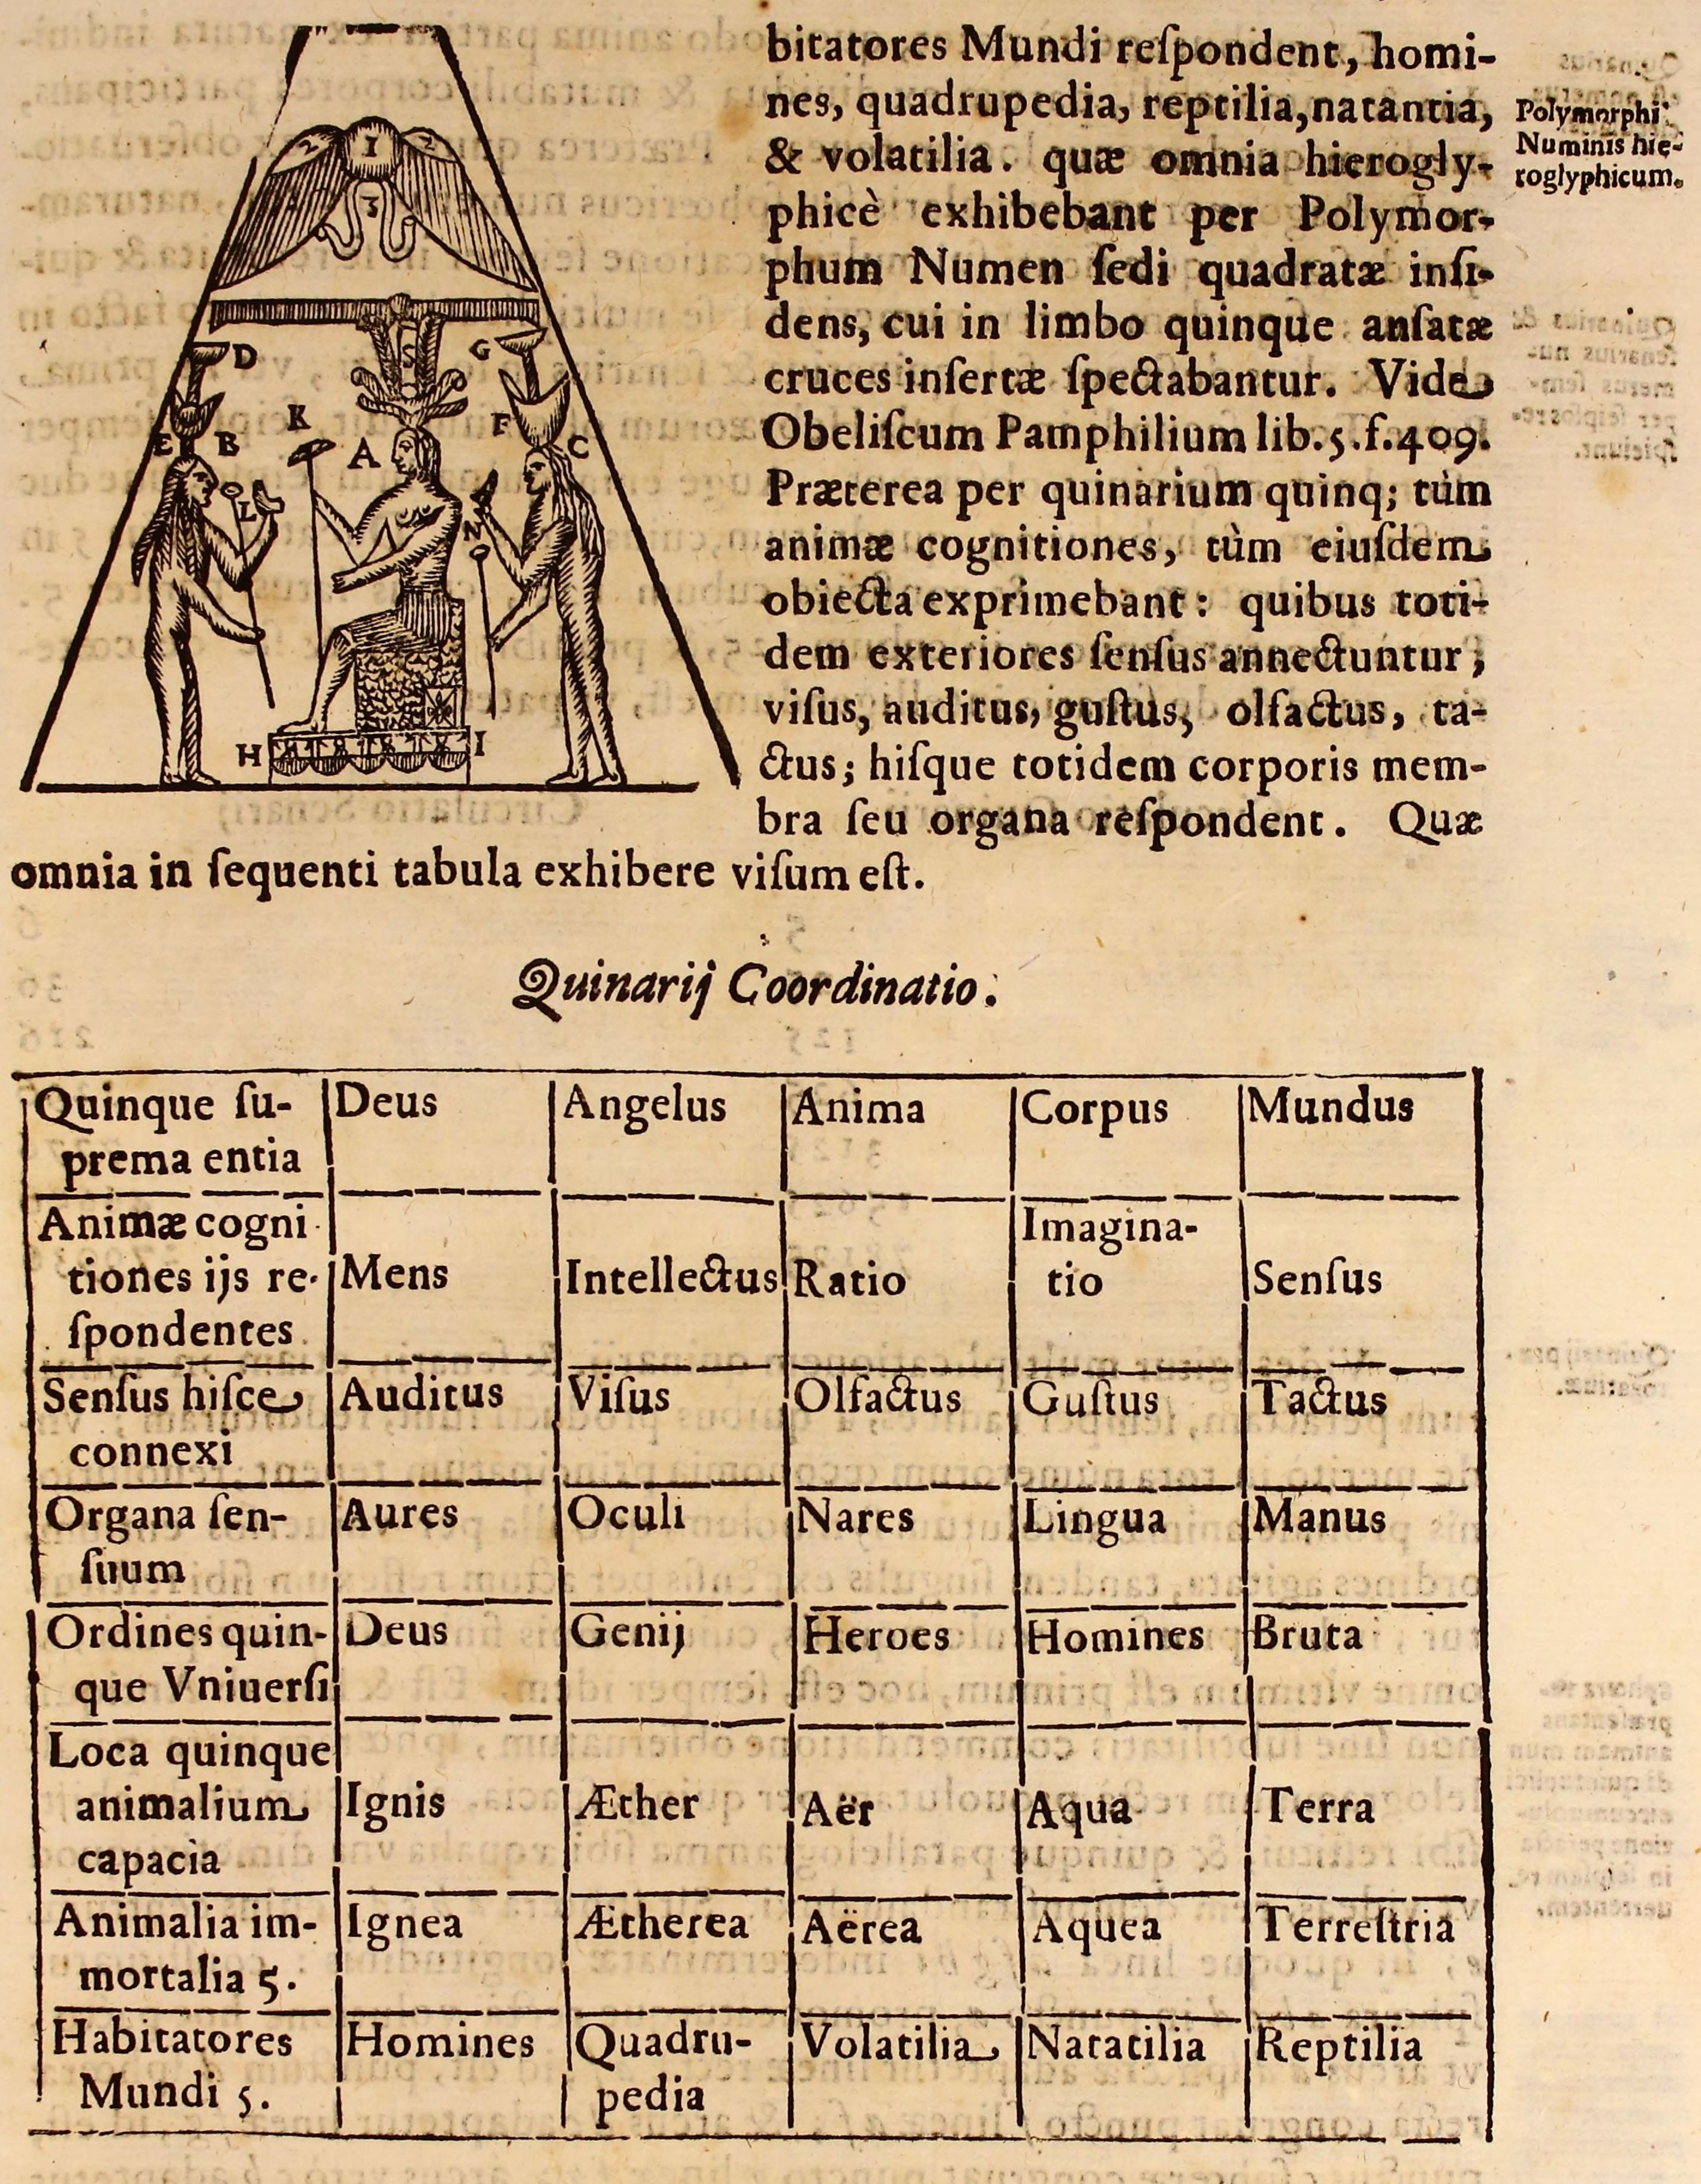 bitatores Mundi reſpondent, homi-
nes, quadrupedia, reptilia, natantia,
& volatilia. quæ omnia hierogly-
phicè exhibebant per Polymor-
phum Numen ſedi quadratæ inſi-
dens, cui in limbo quinque anſatæ
cruces inſertæ ſpectabantur. Vide
Obeliſcum Pamphilium lib. 5. f. 409.
Præterea per quinarium quinq; tùm
animæ cognitiones, tùm eiuſdem
obiecta exprimebant: quibus toti-
dem exteriores ſenſus annectuntur;
viſus, auditus, guſtus, olfactus, ta-
ctus; hiſque totidem corporis mem-
bra ſeu organa reſpondent. Quæ
omnia in ſequenti tabula exhibere viſum eſt.
Polymorphi
Numinis hie-
roglyphicum.
2 1 2
3
D S G
K F
E B A C
L N
H I
Quinarij Coordinatio.
Quinque ſu- Deus Angelus Anima Corpus Mundus
prema entia
Animæ cogni Imagina-
tiones ijs re- Mens Intellectus Ratio tio Senſus
ſpondentes
Senſus hiſce Auditus Viſus Olfactus Guſtus Tactus
connexi
Organa ſen- Aures Oculi Nares Lingua Manus
ſuum
Ordines quin- Deus Genij Heroes Homines Bruta
que Vniuerſi
Loca quinque
animalium Ignis Æther Aër Aqua Terra
capacia
Animalia im- Ignea Ætherea Aërea Aquea Terreſtria
mortalia 5.
Habitatores Homines Quadru- Volatilia Natatilia Reptilia
Mundi 5. pedia